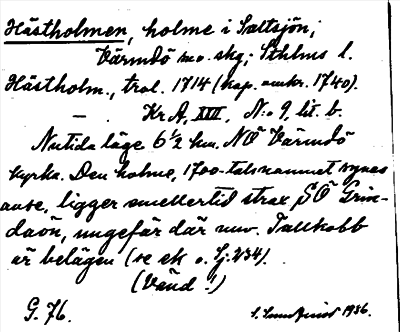 Hästholmen, holme i Saltsjön,
Värmdö sn o. skg; Sthlms l.
Hästholm., trol. 1714 (kap. omkr. 1740).
— . Kr A, XVII, N:o 9, lit. b.
Nutida läge 6½ km. NÖ Värmdö
kyrka. Den holme, 1700-talsnamnet synes
avse, ligger emellertid strax SÖ Grin-
daön, ungefär där nuv. Tallkobb
är belägen (se ek o. Sj: 234).
(Vänd!)
G. 76. 1936.